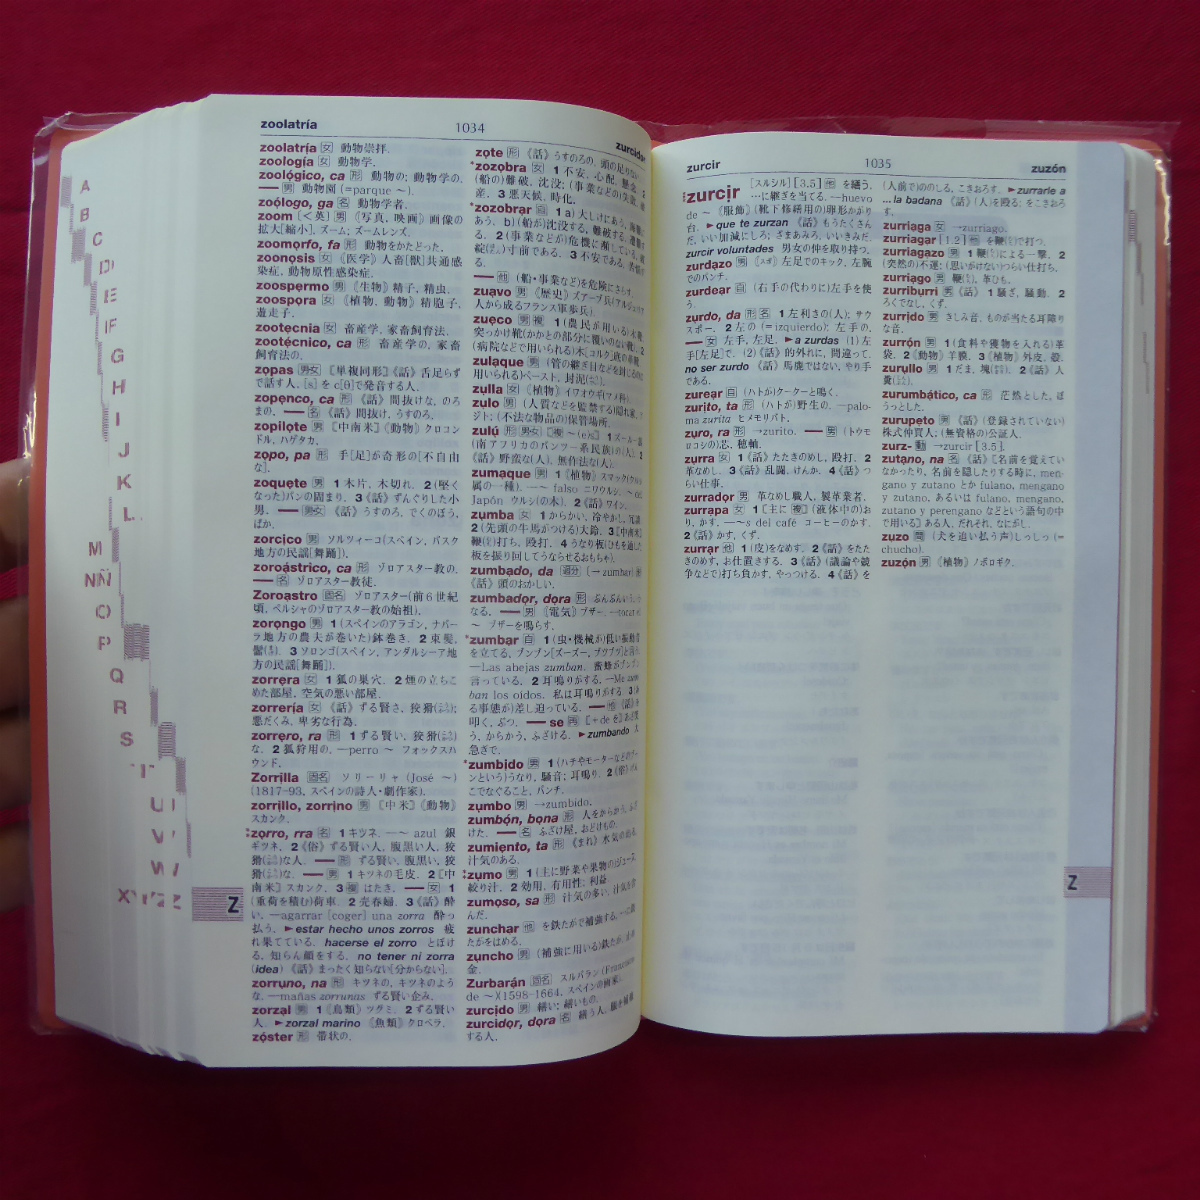 zoolatría
1034
zurcidor
zoolatría 女 動物崇拝.
zoología 女 動物学.
zoológico, ca 形 動物の; 動物学の.
── 男 動物園 (=parque ～).
zoólogo, ga 名 動物学者.
zoom [<英] 男 《写真, 映画》画像の
拡大[縮小], ズーム; ズームレンズ.
zoomorfo, fa 形 動物をかたどった.
zoonosis 女 《医学》人畜[獣]共通感
染症, 動物原性感染症.
zoospermo 男 《生物》精子, 精虫.
zoospora 女 《植物, 動物》精胞子,
遊走子.
zootecnia 女 畜産学, 家畜飼育法.
zootécnico, ca 形 畜産学の, 家畜
飼育法の.
zopas 男女 『単複同形』《話》舌足らず
で話す人, [s]を c[θ]で発音する人.
zopenco, ca 形 《話》間抜けな, のろ
まの. ── 名 《話》間抜け, うすのろ.
zopilote 男 『中南米』《動物》クロコン
ドル, ハゲタカ.
zopo, pa 形 手[足]が奇形の[不自由
な].
zoquete 男 1 木片, 木切れ. 2 (堅く
なった)パンの固まり. 3《話》ずんぐりした小
男. ── 男女 《話》うすのろ, でくのぼう,
ばか.
zorcico 男 ソルツィーコ(スペイン, バスク
地方の民謡[舞踊]).
zoroástrico, ca 形 ゾロアスター教の.
── 名 ゾロアスター教徒.
Zoroastro 固名 ゾロアスター(前6世紀
頃, ペルシャのゾロアスター教の始祖).
zorongo 男 1 (スペインのアラゴン, ナバー
ラ地方の農夫が巻いた)鉢巻き. 2 束髪,
髷. 3 ソロンゴ(スペイン, アンダルシーア地
方の民謡[舞踊]).
zorrera 女 1 狐の巣穴. 2 煙の立ちこ
めた部屋, 空気の悪い部屋.
zorrería 女 《話》ずる賢さ, 狡猾;
悪だくみ, 卑劣な行為.
zorrero, ra 形 1 ずる賢い, 狡猾
な. 2 狐狩用の. ―perro ～ フォックスハ
ウンド.
Zorrilla 固名 ソリーリャ (José ～)
(1817-93, スペインの詩人・劇作家).
zorrillo, zorrino 男 『中米』《動物》
スカンク.
zorro, rra 名 1 キツネ. ―～ azul 銀
ギツネ. 2《俗》ずる賢い人, 腹黒い人, 狡
猾な人. ── 形 ずる賢い, 腹黒い, 狡
猾な. ── 男 1 キツネの毛皮. 2『中
南米』スカンク. 3 複 はたき. ── 女 1
(重荷を積む)荷車. 2 売春婦. 3《話》酔
い. ―agarrar [coger] una zorra 酔っ
払う. ►estar hecho unos zorros 疲
れ果てている. hacerse el zorro とぼけ
る, 知らん顔をする. no tener ni zorra
(idea) 《話》まったく知らない[分からない].
zorruno, na 形 キツネの, キツネのよう
な. ―mañas zorrunas ずる賢い企み.
zorzal 男 1《鳥類》ツグミ. 2 ずる賢い
人. ►zorzal marino 《魚類》クロベラ.
zóster 形 帯状の.
zote 形 《話》うすのろの, 頭の足りない.
zozobra 女 1 不安, 心配, 懸念. 2
(船の)難破, 沈没; (事業などの)失敗, 破
産. 3 悪天候, 時化.
zozobrar 自 1 a) 大しけにあう, 海難に
あう. b) (船が)沈没する, 難破する, 遭難す
る. 2 (事業などが)危機に瀕している, 破
綻寸前である. 3 不安である,
── 他 (船・事業など)を危険にさらす.
zuavo 男 《歴史》ズアーブ兵(アルジェリア
人から成るフランス軍歩兵).
zueco 男複 1 (農民が用いる)木靴,
突っかけ靴(かかとの部分に覆いのない靴). 2
(病院などで用いられる)木[コルク]底の革靴.
zulaque 男 (管の継ぎ目などを封じるのに
用いられる)ペースト, 封泥.
zulla 女 《植物》イワオウギ(マメ科).
zulo 男 (人質などを監禁する)隠れ家, ア
ジト; (不法な物品の)保管場所.
zulú 形 男女 『複 ～(e)s』1 ズールー語
(南アフリカのバンツー系民族)の(人). 2
《話》野蛮な(人), 無作法な(人).
zumaque 男 1《植物》スマック(ウルシ
属の一種). ―～ falso ニワウルシ. ～ del
Japón ウルシ(の木). 2《話》ワイン.
zumba 女 1 からかい, 冷やかし, 冗談.
2 (先頭の牛馬がつける)大鈴. 3『中南米』
鞭打ち, 殴打. 4 うなり板(ひもを通した
板を振り回してうならせるおもちゃ).
zumbado, da 過分 (→zumbar) 形
《話》頭のおかしい.
zumbador, dora 形 ぶんぶんいう, うな
なる. ── 男 《電気》ブザー. ―tocar el
～ ブザーを鳴らす.
zumbar 自 1 (虫・機械が)低い振動音
を立てる, ブンブン[ズーズー, ブウブウ]と言う.
―Las abejas zumban. 蜜蜂がブンブン
言っている. 2 耳鳴りがする. ―Me zum-
ban los oídos. 私は耳鳴りがする. 3 (あ
る事態が)差し迫っている. ── 他 《話》を
叩く, ぶつ. ── se 再 『+de を』あざ笑
う, からかう, ふざける. ►zumbando 大
急ぎで.
zumbido 男 1 (ハチやモーターなどのブー
ンという)うなり, 騒音; 耳鳴り. 2《俗》げん
こでなぐること, パンチ.
zumbo 男 →zumbido.
zumbón, bona 形 人をからかう, ふざ
けた. ── 名 ふざけ屋, おどけもの.
zumiento, ta 形 《まれ》水気のある,
汁気のある.
zumo 男 1 (主に野菜や果物の)ジュース,
絞り汁. 2 効用, 有用性; 利益.
zumoso, sa 形 汁気の多い, 汁気を含
んだ.
zunchar 他 を鉄たがで補強する, ～に鉄
たがをはめる.
zuncho 男 (補強に用いる)鉄たが,
金.
Zurbarán 固名 スルバラン (Francisco
de ～)(1598-1664, スペインの画家).
zurcido 男 繕い; 繕いもの.
zurcidor, dora 名 繕う人, 服を補修
する人.
A
B
C
D
E
F
G
H
I
J
K
L
M
N Ñ
O
P
Q
R
S
T
U
V
W
X Y Z
Z
zurcir
1035
zuzón
zurcir [スルシル][3.5] 他 を繕う,
…に継ぎを当てる. ―huevo
de ～ 《服飾》(靴下修繕用の)卵形かがり
台. ►que te zurzan 《話》もうたくさん
だ, いい加減にしろ; ざまあみろ, いいきみだ.
zurcir voluntades 男女の仲を取り持つ.
zurdazo 男 《スポ》左足でのキック, 左腕
でのパンチ.
zurdear 自 (右手の代わりに)左手を使
う.
zurdo, da 形名 1 左利きの(人); サウ
スポー. 2 左の (=izquierdo); 左手の.
── 女 左手, 左足. ►a zurdas (1) 左
手[左足]で. (2)《話》的外れに, 間違って.
no ser zurdo 《話》馬鹿ではない, やり手
である.
zurear 自 (ハトが)クークーと鳴く.
zurito, ta 形 (ハトが)野生の. ―palo-
ma zurita ヒメモリバト.
zuro, ra 形 →zurito. ── 男 (トウモ
ロコシの)芯, 穂軸.
zurra 女 1《話》たたきのめし, 殴打. 2
革なめし. 3《話》乱闘, けんか. 4《話》つ
らい仕事.
zurrador 男 革なめし職人, 製革業者.
zurrapa 女 1『主に 複』(液体中の)お
り, かす. ―～s del café コーヒーのかす.
2《話》かす, くず.
zurrar 他 1 (皮)をなめす. 2《話》をたた
きのめす, お仕置きする. 3《話》(議論や競
争などで)打ち負かす, やっつける. 4《話》を
(人前で)ののしる, こきおろす. ►zurrarle a
...la badana 《話》(人)を殴る; をこきおろ
す.
zurriaga 女 →zurriago.
zurriagar [1.2] 他 を鞭で打つ.
zurriagazo 男 1 鞭による一撃. 2
(突然の)不運; (思いがけない)つらい仕打ち.
zurriago 男 鞭, 革ひも.
zurriburri 男 《話》1 騒ぎ, 騒動. 2
ろくでなし, くず.
zurrido 男 きしみ音, ものが当たる耳障り
な音.
zurrón 男 1 (食料や獲物を入れる)革
袋. 2《動物》羊膜. 3《植物》外皮, 殻.
zurullo 男 1 だま, 塊. 2《話》人
糞.
zurumbático, ca 形 茫然とした, ぼ
うっとした.
zurupeto 男 《話》(登録されていない)
株式仲買人; (無資格の)公証人.
zurz- 動 →zurcir [3.5].
zutano, na 名 《話》『名前を覚えてい
なかったり, 名前を隠したりする時に, men-
gano y zutano とか fulano, mengano
y zutano, あるいは fulano, mengano,
zutano y perengano などという語句の中
で用いる』ある人, だれそれ, なにがし.
zuzo 間 (犬を追い払う声)しっしっ (=
chucho).
zuzón 男 《植物》ノボロギク.
Z